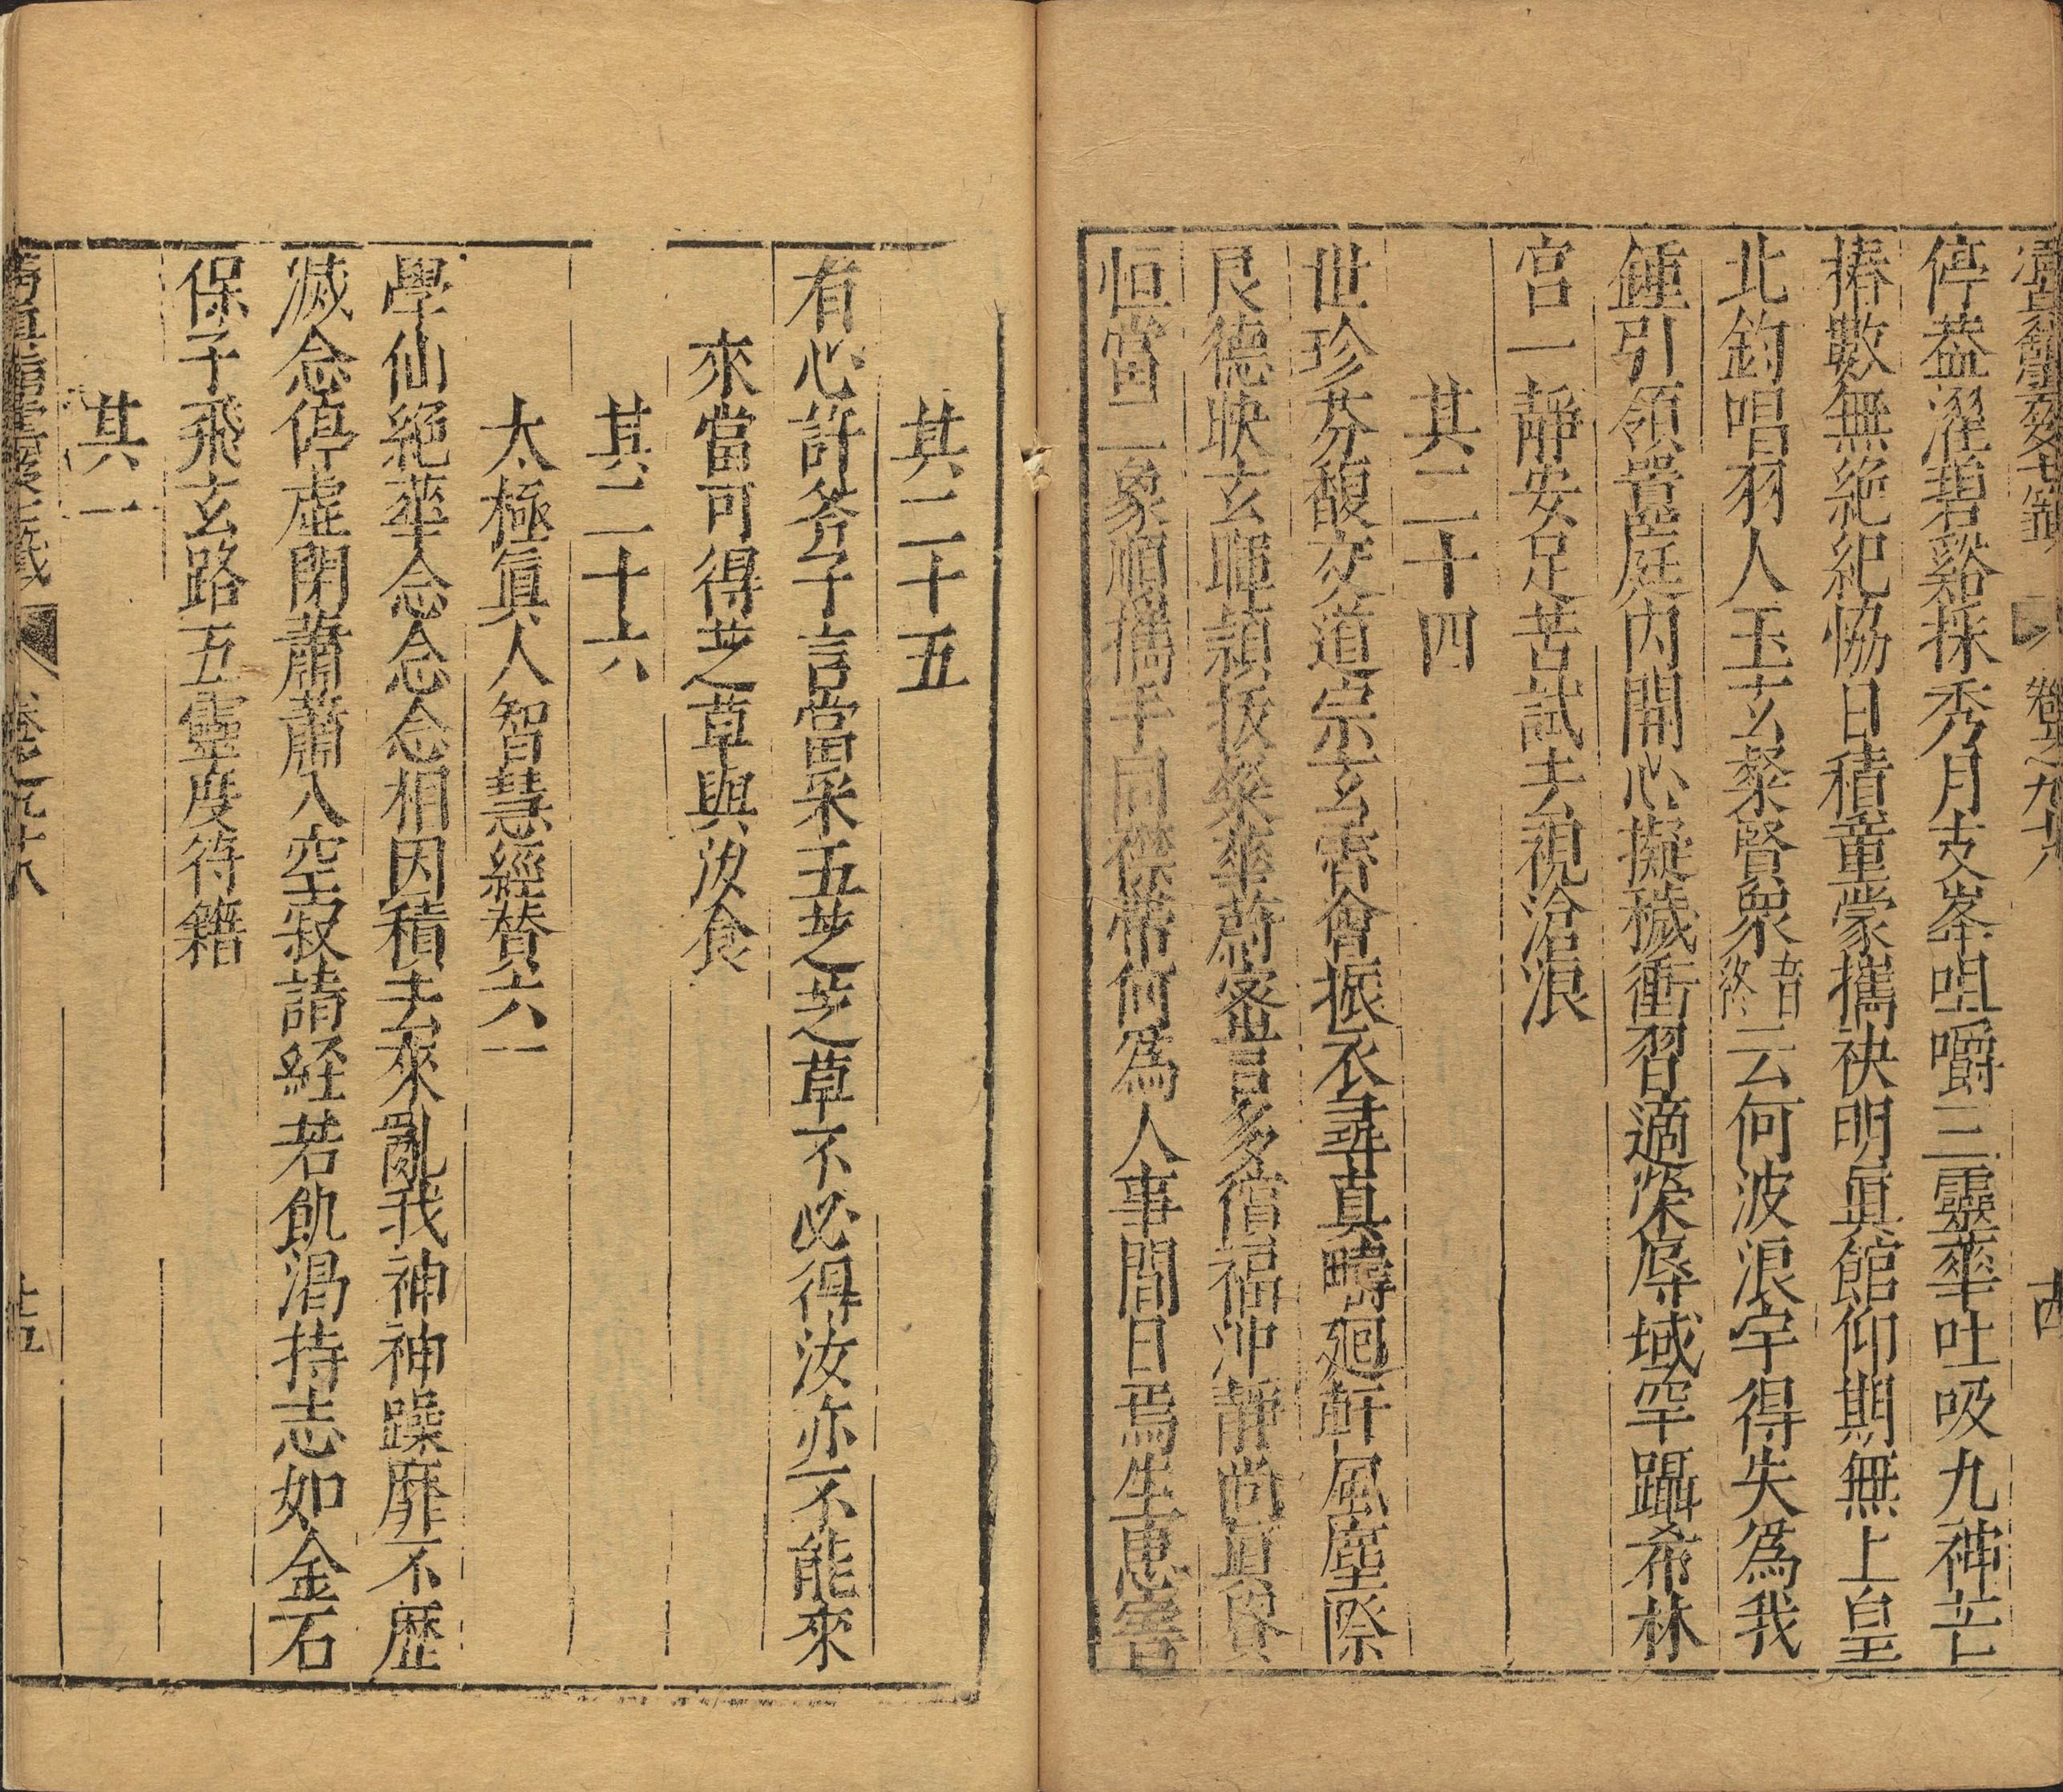 卷之九十八
停葢濯碧谿採秀月支峯咀嚼三靈華吐吸九神芒
椿數無絶紀恊日積童蒙攜袂明眞館仰期無上皇
北鈞唱羽人玉玄粲賢衆音終云何波浪宇得失爲我
鍾引領囂庭内開心擬穢衝習適榮辱域罕躡希林
宫一靜安足苦試去視滄浪
其二十四
世珍芬馥交道宗玄霄會振衣尋真疇廻軒風塵際
良德映玄暉頴拔粲華蔚密言多償福沖靜尚眞貴
恒當二象順攜手同襟帶何爲人事間日焉生患害
其二十五
有心許斧子言當采五芝芝草不必得汝亦不能來
來當可得芝草與汝食
其二十六
太極眞人智慧經贊六一
學仙絶華念念念相因積去來亂我神神躁靡不歷
滅念停虛閑蕭蕭入空寂請經若飢渴持志如金石
保子飛玄路五靈度符籍
其一